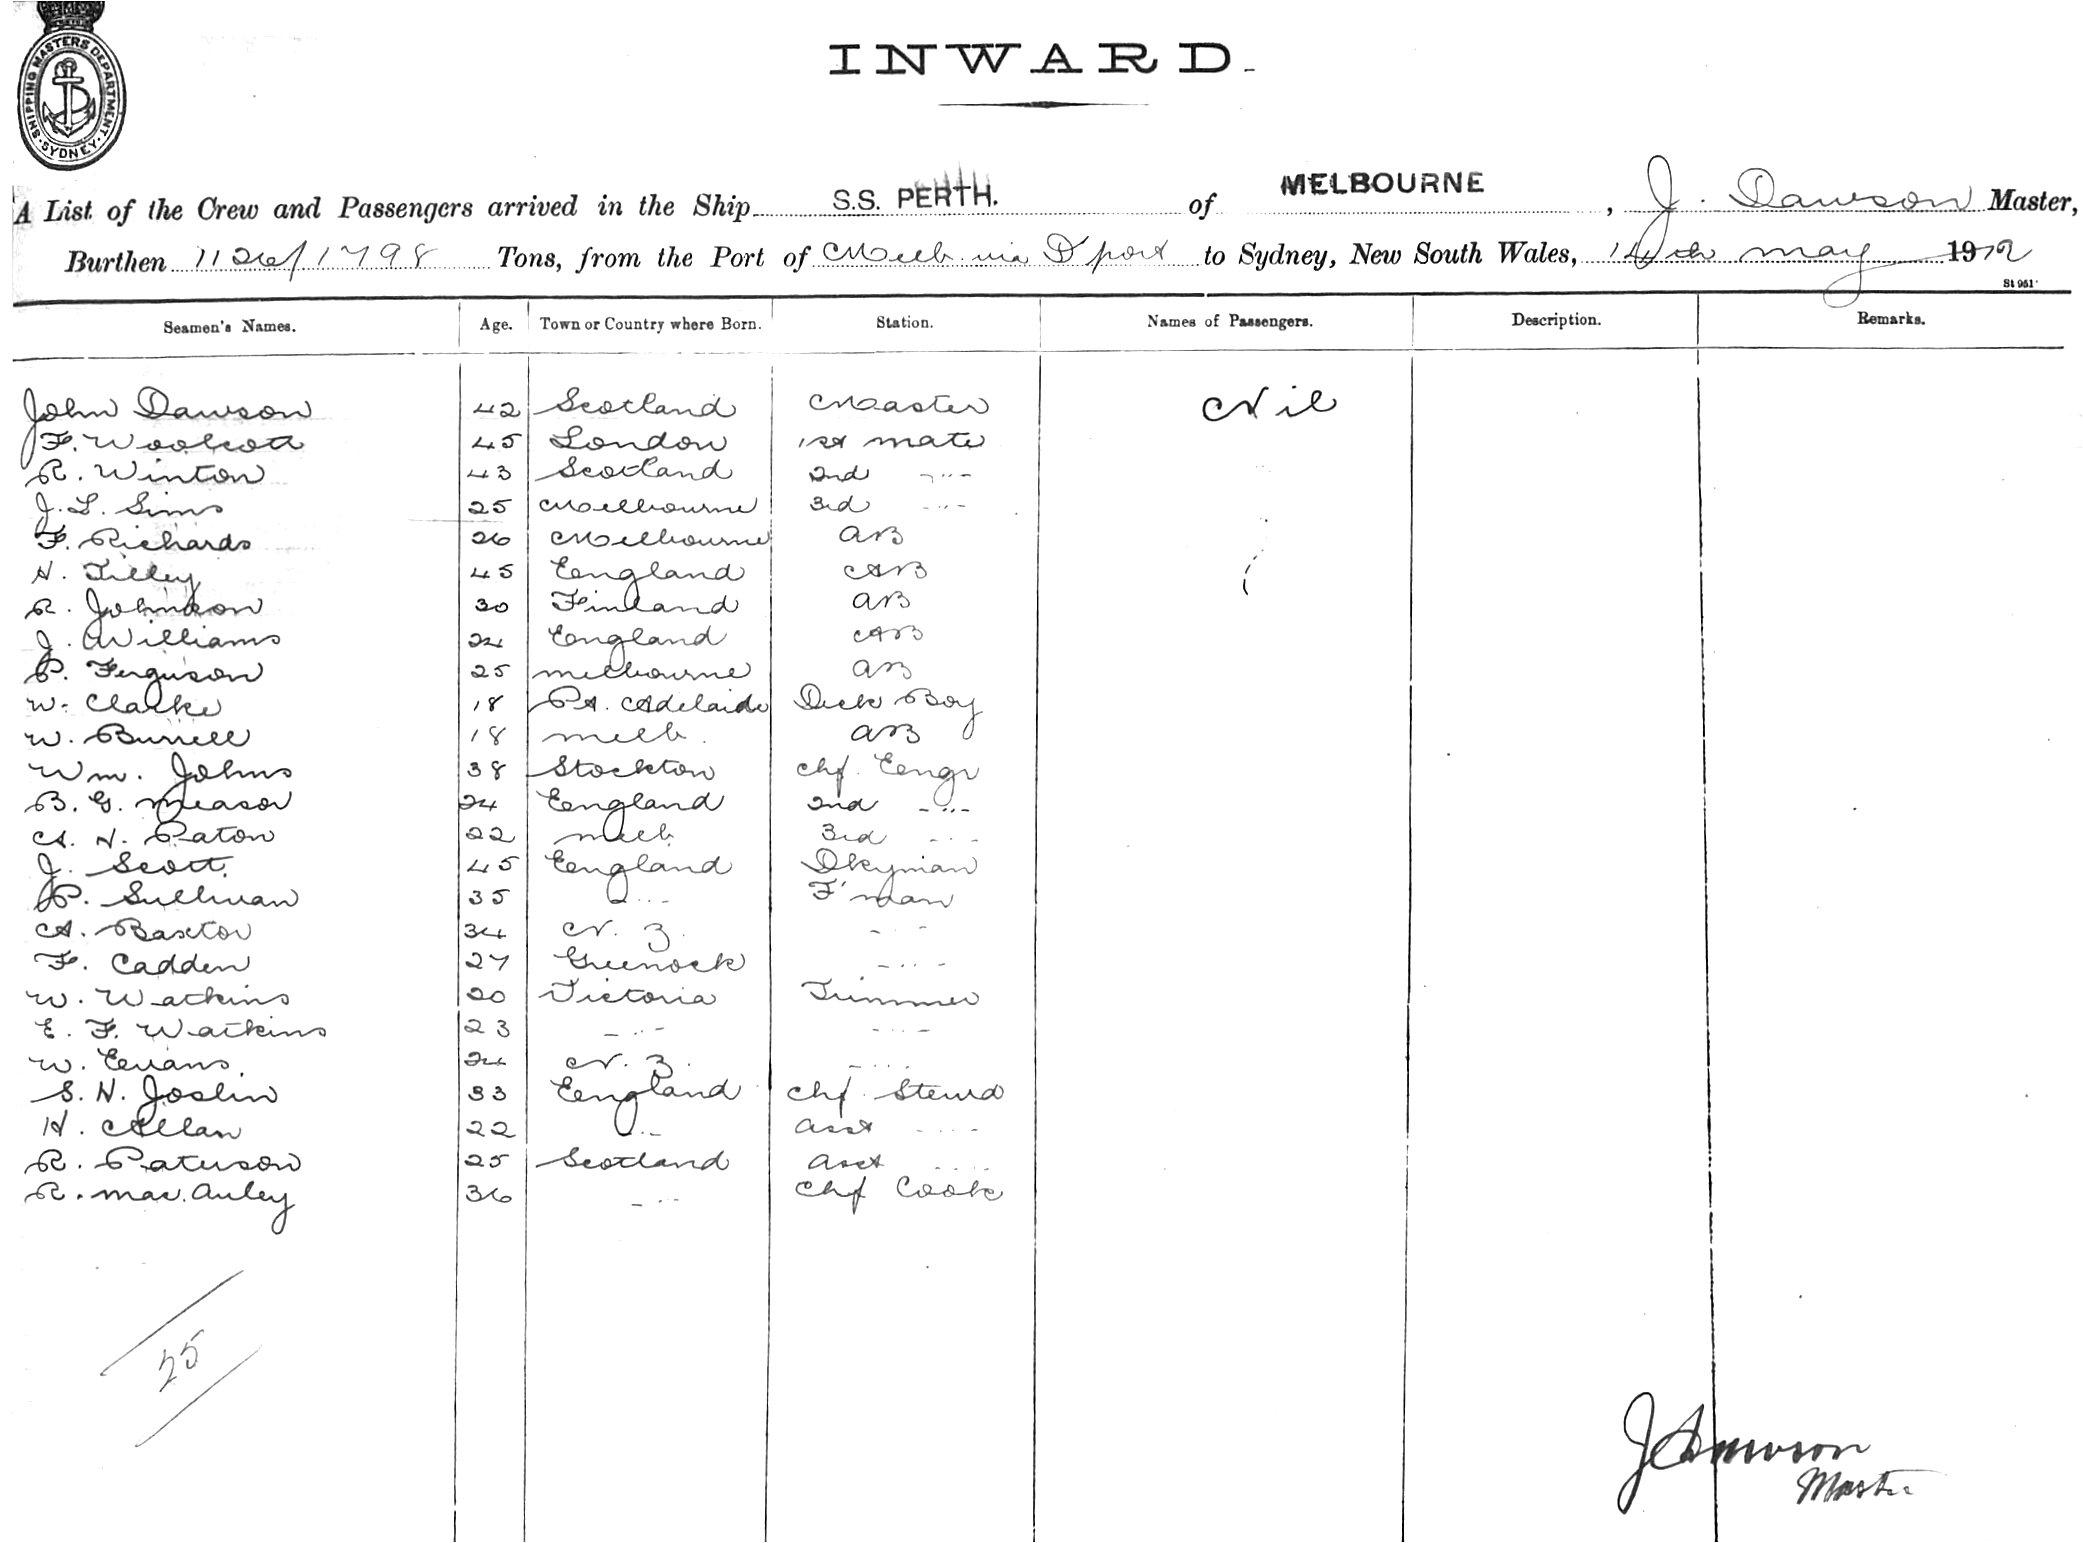 SHIPPING MASTERS DEPARTMENT. SYDNEY
INWARD.
A List of the Crew and Passengers arrived in the Ship S.S. PERTH. of MELBOURNE, J. Dawson Master,
Burthen 1126/1798 Tons, from the Port of Melb. via D'port to Sydney, New South Wales, 14th may 1912
St 951
Seamen's Names. Age. Town or Country where Born. Station. Names of Passengers. Description. Remarks.
John Dawson 42 Scotland Master Nil
F. Woolcott 45 London 1st mate
R. Winton 43 Scotland 2nd -"-
J. L. Sims 25 Melbourne 3rd -"-
F. Richards 26 Melbourne AB
H. Tilley 45 England AB
R. Johnson 30 Finland AB
J. Williams 24 England AB
P. Ferguson 25 melbourne AB
W. Clarke 18 Pt. Adelaide Deck Boy
W. Burrell 18 melb. AB
Wm. Johns 38 Stockton Chf. Engr
B. G. Measor 24 England 2nd -"-
A. H. Paton 22 melb. 3rd -"-
J. Scott. 45 England Dkyman
P. Sullivan 35 -"- F'man
A. Baxter 34 N. Z. -"-
F. Cadden 27 Greenock -"-
W. Watkins 20 Victoria Trimmer
E. F. Watkins 23 -"- -"-
W. Evans. 24 N. Z. -"-
S. H. Joslin 33 England Chf. Steward
H. Allan 22 -"- Asst -"-
R. Paterson 25 Scotland Asst -"-
R. Mac. Auley 36 -"- Chf Cook
25
J Dawson
Master